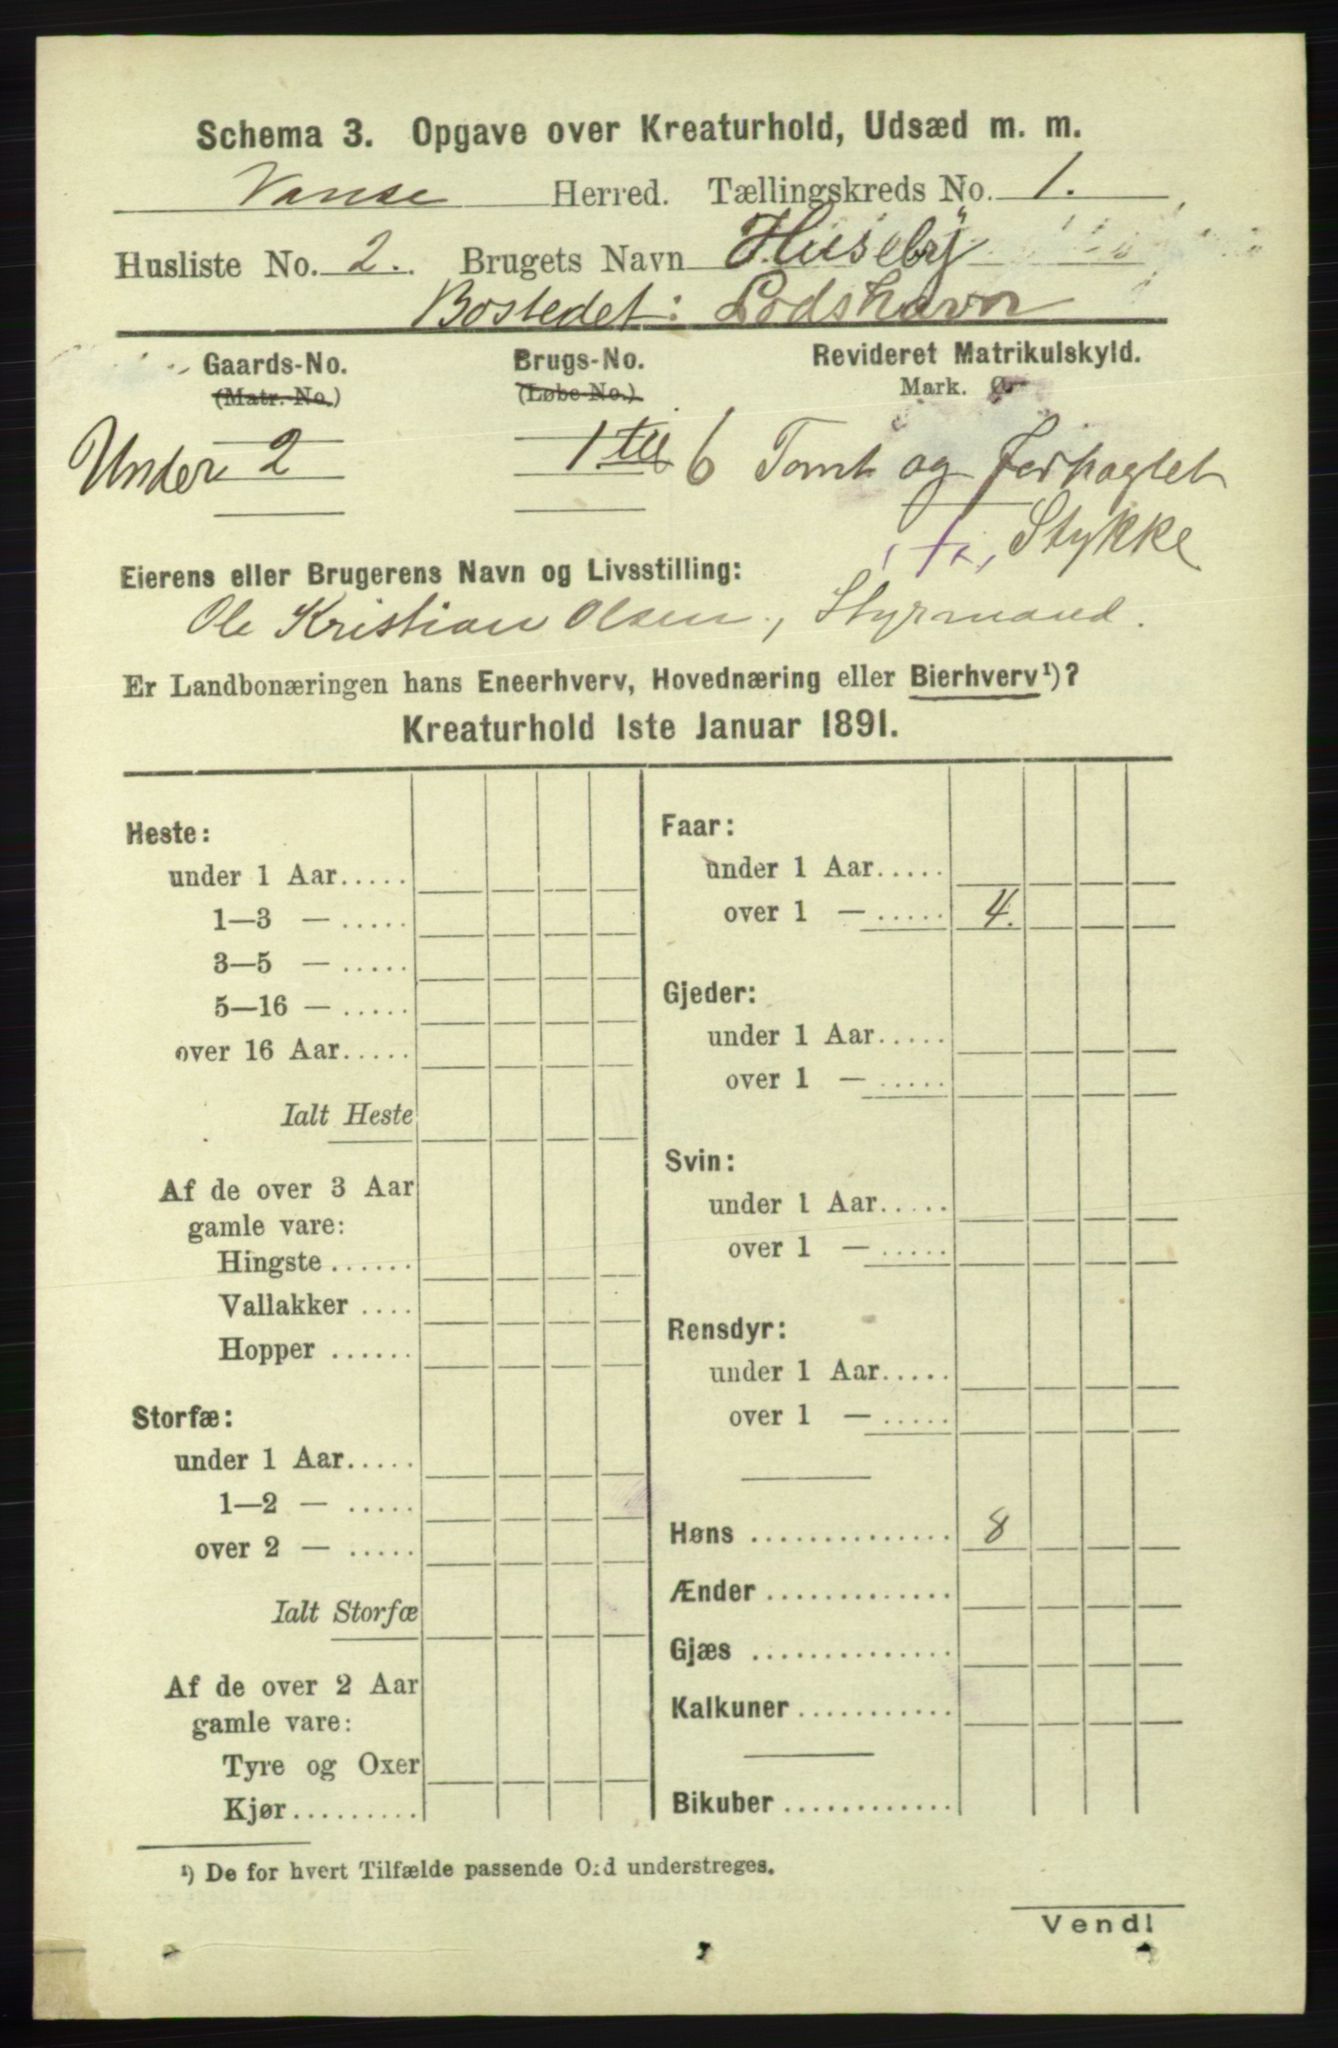 Schema 3. Opgave over Kreaturhold, Udsæd m. m.
Vanse Herred. Tællingskreds No. 1.
Husliste No. 2. Brugets Navn Huseby
Bostedet: Lodshavn
Gaards-No. Brugs-No. Revideret Matrikulskyld.
(Matr.-No.) (Løbe-No.) Mark. Ør.
Under 2 1 til 6 Tomt og Forpagtet
Stykke
Eierens eller Brugerens Navn og Livsstilling:
Ole Kristian Olsen, Styrmand.
Er Landbonæringen hans Eneerhverv, Hovednæring eller Bierhverv¹)?
Kreaturhold 1ste Januar 1891.
Heste:
under 1 Aar.....
1—3 — .....
3—5 — .....
5—16 — .....
over 16 Aar.....
Ialt Heste
Af de over 3 Aar
gamle vare:
Hingste ......
Vallakker ....
Hopper ......
Storfæ:
under 1 Aar.....
1—2 — .....
over 2 — .....
Ialt Storfæ
Af de over 2 Aar
gamle vare:
Tyre og Oxer
Kjør.........
Faar:
under 1 Aar.....
over 1 — ..... 4.
Gjeder:
under 1 Aar.....
over 1 — .....
Svin:
under 1 Aar.....
over 1 — .....
Rensdyr:
under 1 Aar.....
over 1 — .....
Høns .............. 8
Ænder .............
Gjæs ..............
Kalkuner ...........
Bikuber ............
¹) De for hvert Tilfælde passende Ord understreges.
Vend!